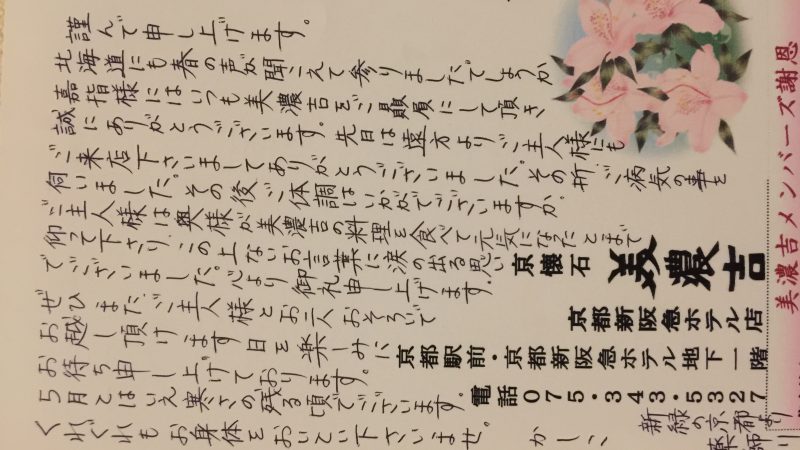 謹んで申し上げます。
北海道にも春の声が聞こえて参りましたでしょうか
嘉指様にはいつも美濃吉をご贔屓にして頂き
誠にありがとうございます。先日は遠方よりご主人様にも
ご来店下さいましてありがとうございました。その折、ご病気の事を
伺いました。その後ご体調はいかがでございますか。
ご主人様は奥様が美濃吉の料理を食べて元気になったとまで
仰って下さり、この上ないお言葉に涙の出る思い
でございました。心より御礼申し上げます。
ぜひまたご主人様とお二人おそろで
お越し頂けます日を楽しみに
お待ち申し上げております。
5月とはいえ寒さの残る頃でございます。
くれぐれもお身体をおいとい下さいませ。
かしこ
新緑の京都より
京懐石 美濃吉
京都新阪急ホテル店
京都駅前・京都新阪急ホテル地下一階
電話075・343・5327
美濃吉メンバーズ謝恩